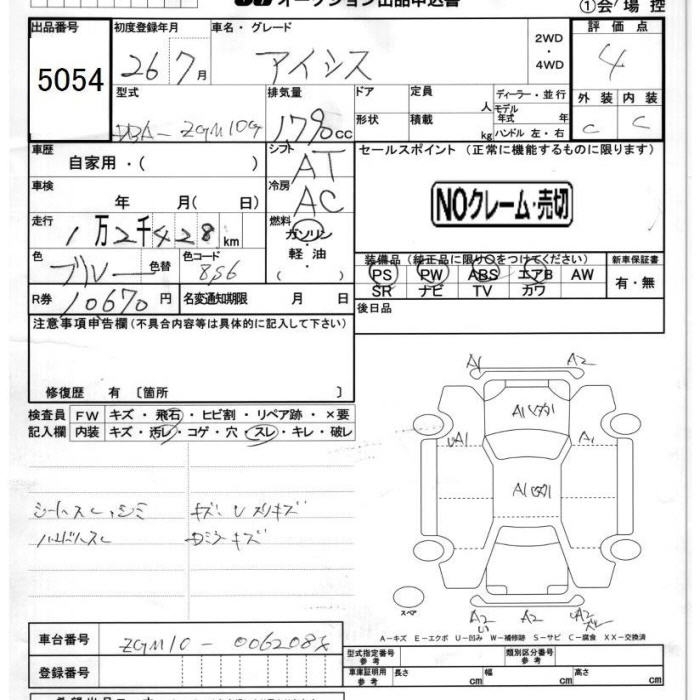 オークション出品申込書
①会場控
出品番号
5054
初度登録年月
26 7月
車名・グレード
アイシス
2WD
・
4WD
評価点
4
外装 内装
C C
型式
DBA-ZGM10G
排気量
1790cc
ドア
定員
人
ディーラー・並行
モデル
年式 年
形状
積載
kg
ハンドル 左・右
車歴
自家用・( )
シフト
AT
セールスポイント (正常に機能するものに限ります)
NOクレーム・売切
車検
年 月( 日)
冷房
AC
走行
1万2千428km
燃料
ガソリン
・
軽油
( )
色
ブルー
色替
色コード
8S6
装備品(純正品に限り○をつけてください)
PS PW ABS エアB AW
SR ナビ TV カワ
新車保証書
有・無
R券
10670円
名変通知期限 月 日
後日品
注意事項申告欄(不具合内容等は具体的に記入して下さい)
修復歴 有 〔箇所 〕
検査員
記入欄
FW キズ・飛石・ヒビ割・リペア跡・×要
内装 キズ・汚レ・コゲ・穴・スレ・キレ・破レ
シートスレ、シミ
ハンドルスレ
キズ、Uメリキズ
Dミラーキズ
A1 A2
A1
UA1 A1
A1
スペア
A2 A2 UA2
A-キズ E-エクボ U-凹み W-補修跡 S-サビ C-腐食 XX-交換済
車台番号
ZGM10-006208
登録番号
型式指定番号
参考
類別区分番号
参考
車庫証明用
参考
長さ cm 幅 cm 高さ cm